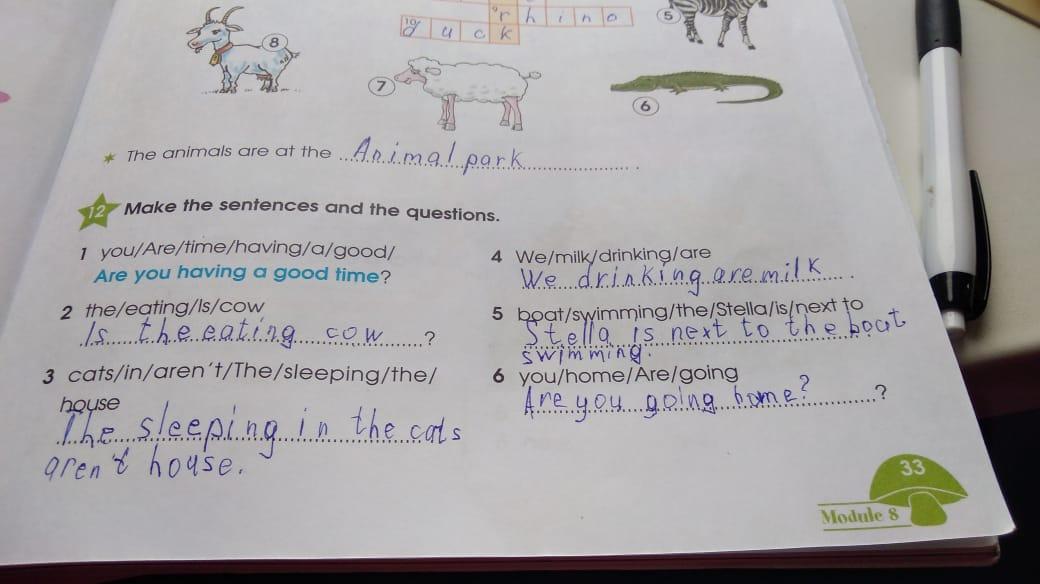 9 r h i n o
5
10 d u c k
8
7
6
* The animals are at the Animal park.
12 Make the sentences and the questions.
1 you/Are/time/having/a/good/
Are you having a good time?
2 the/eating/Is/cow
Is the eating cow ?
3 cats/in/aren't/The/sleeping/the/
house
The sleeping in the cats
aren't house.
4 We/milk/drinking/are
We drinking are milk .
5 boat/swimming/the/Stella/is/next to
Stella is next to the boat
swimming.
6 you/home/Are/going
Are you going home? ?
33
Module 8